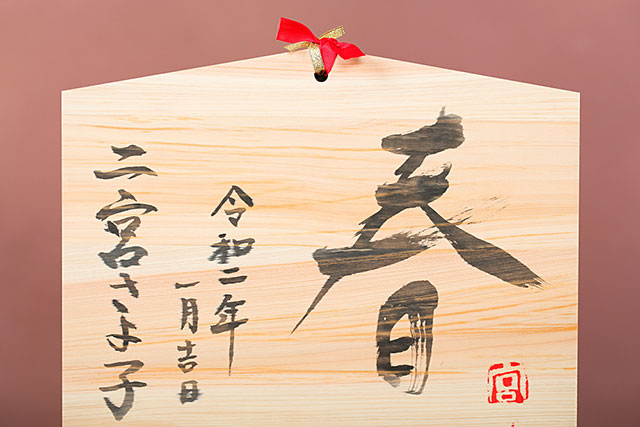 春
令和二年
一月吉日
二宮さよ子
宮